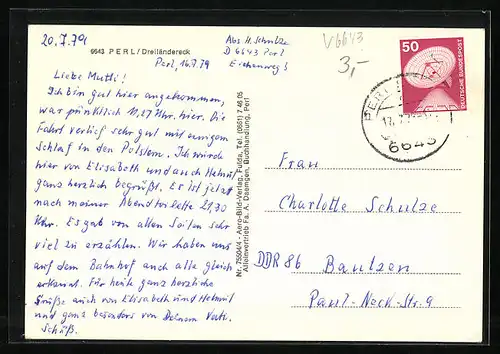 20.7.79
6643 PERL / Dreiländereck
Abs H. Schulze
D 6643 Perl
Eichenweg 6
V6643
3,-
50
DEUTSCHE BUNDESPOST
PERL
6643
Perl, 16.7.79
Liebe Mutti!
Ich bin gut hier angekommen,
war pünktlich 11,27 Uhr hier. Die
Fahrt verlief sehr gut mit einigem
Schlaf in den Polstern. Ich wurde
hier von Elisabeth und auch Helmut
ganz herzlich begrüßt. Es ist jetzt
nach meiner Abendtoilette 21,30
Uhr. Es gab von allen Seiten sehr
viel zu erzählen. Wir haben uns
auf dem Bahnhof auch alle gleich
erkannt. Für heute ganz herzliche
Grüße auch von Elisabeth und Helmut
und ganz besonders von Deinem
Schüß.
Nr. 7500/4 - Aero-Bild-Verlag, Fulda, Tel. (0661) 7 46 05
Alleinvertrieb Fa. A. Daemgen, Buchhandlung, Perl
Frau
Charlotte Schulze
DDR 86 Bautzen
Paul-Neck-Str. 9